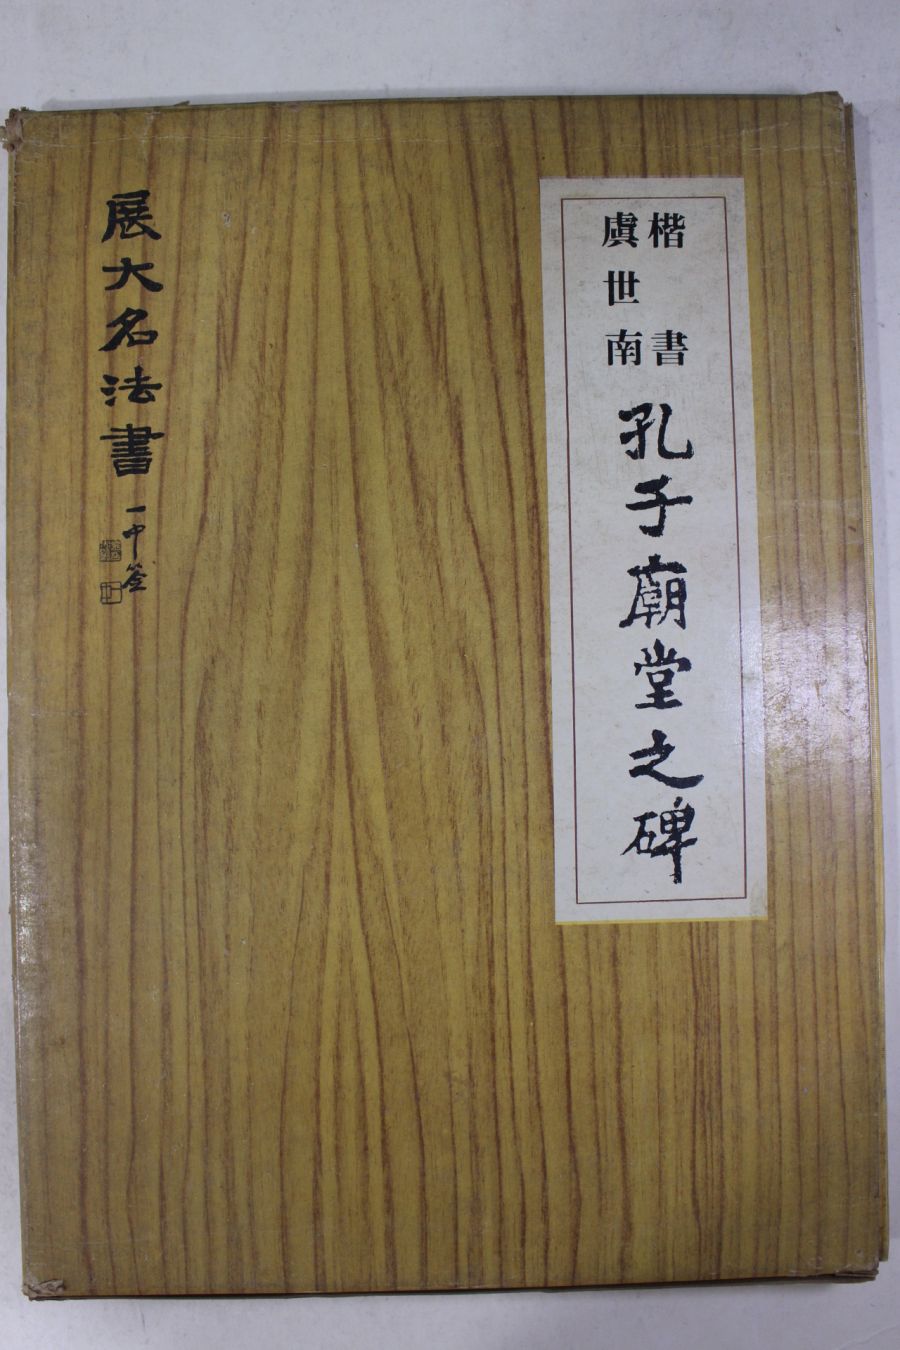 楷書
虞世南
孔子廟堂之碑
展大名法書
一中簽